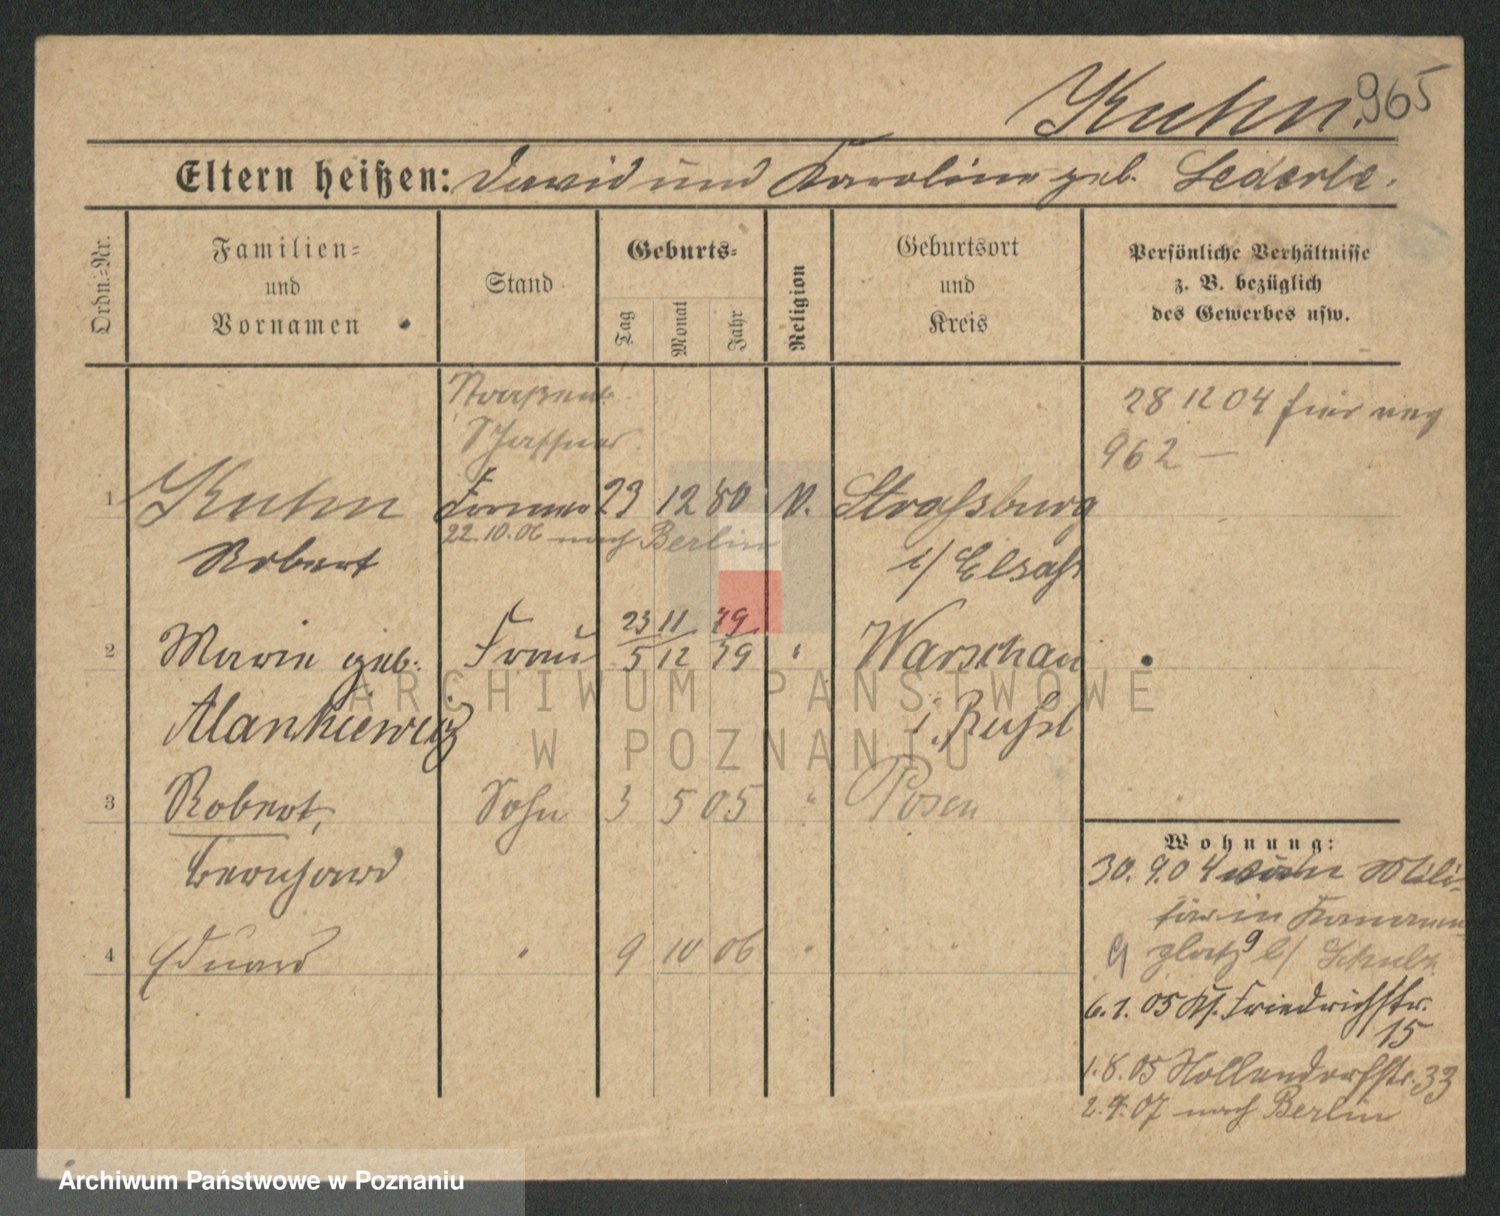 Kuhn. 965
Eltern heißen: David und Karoline geb. Lederle.
Ordn.-Nr.
Familien-
und
Vornamen
Stand
Geburts-
Tag
Monat
Jahr
Religion
Geburtsort
und
Kreis
Persönliche Verhältnisse
z. B. bezüglich
des Gewerbes usw.
28 12 04 hier
962 —
Schaffner
1 Kuhn Former 23 12 80 Straßburg
22.10.06 nach Berlin
Robert i/ Elsaß
23 11 79
2 Marie geb. Frau 5 12 79 " Warschau
Alankiewicz i. Rußl
3 Robert, Sohn 3 5 05 " Posen
Bernhard
4 Eduard " 9 10 06 " "
Wohnung:
30. 9. 04 vom Mili-
tär in
9 b/ Schulz
6. 1. 05 Friedrichstr.
15
1. 8. 05 Hollendorfstr. 33
2. 4. 07 nach Berlin
ARCHIWUM PAŃSTWOWE
W POZNANIU
Archiwum Państwowe w Poznaniu